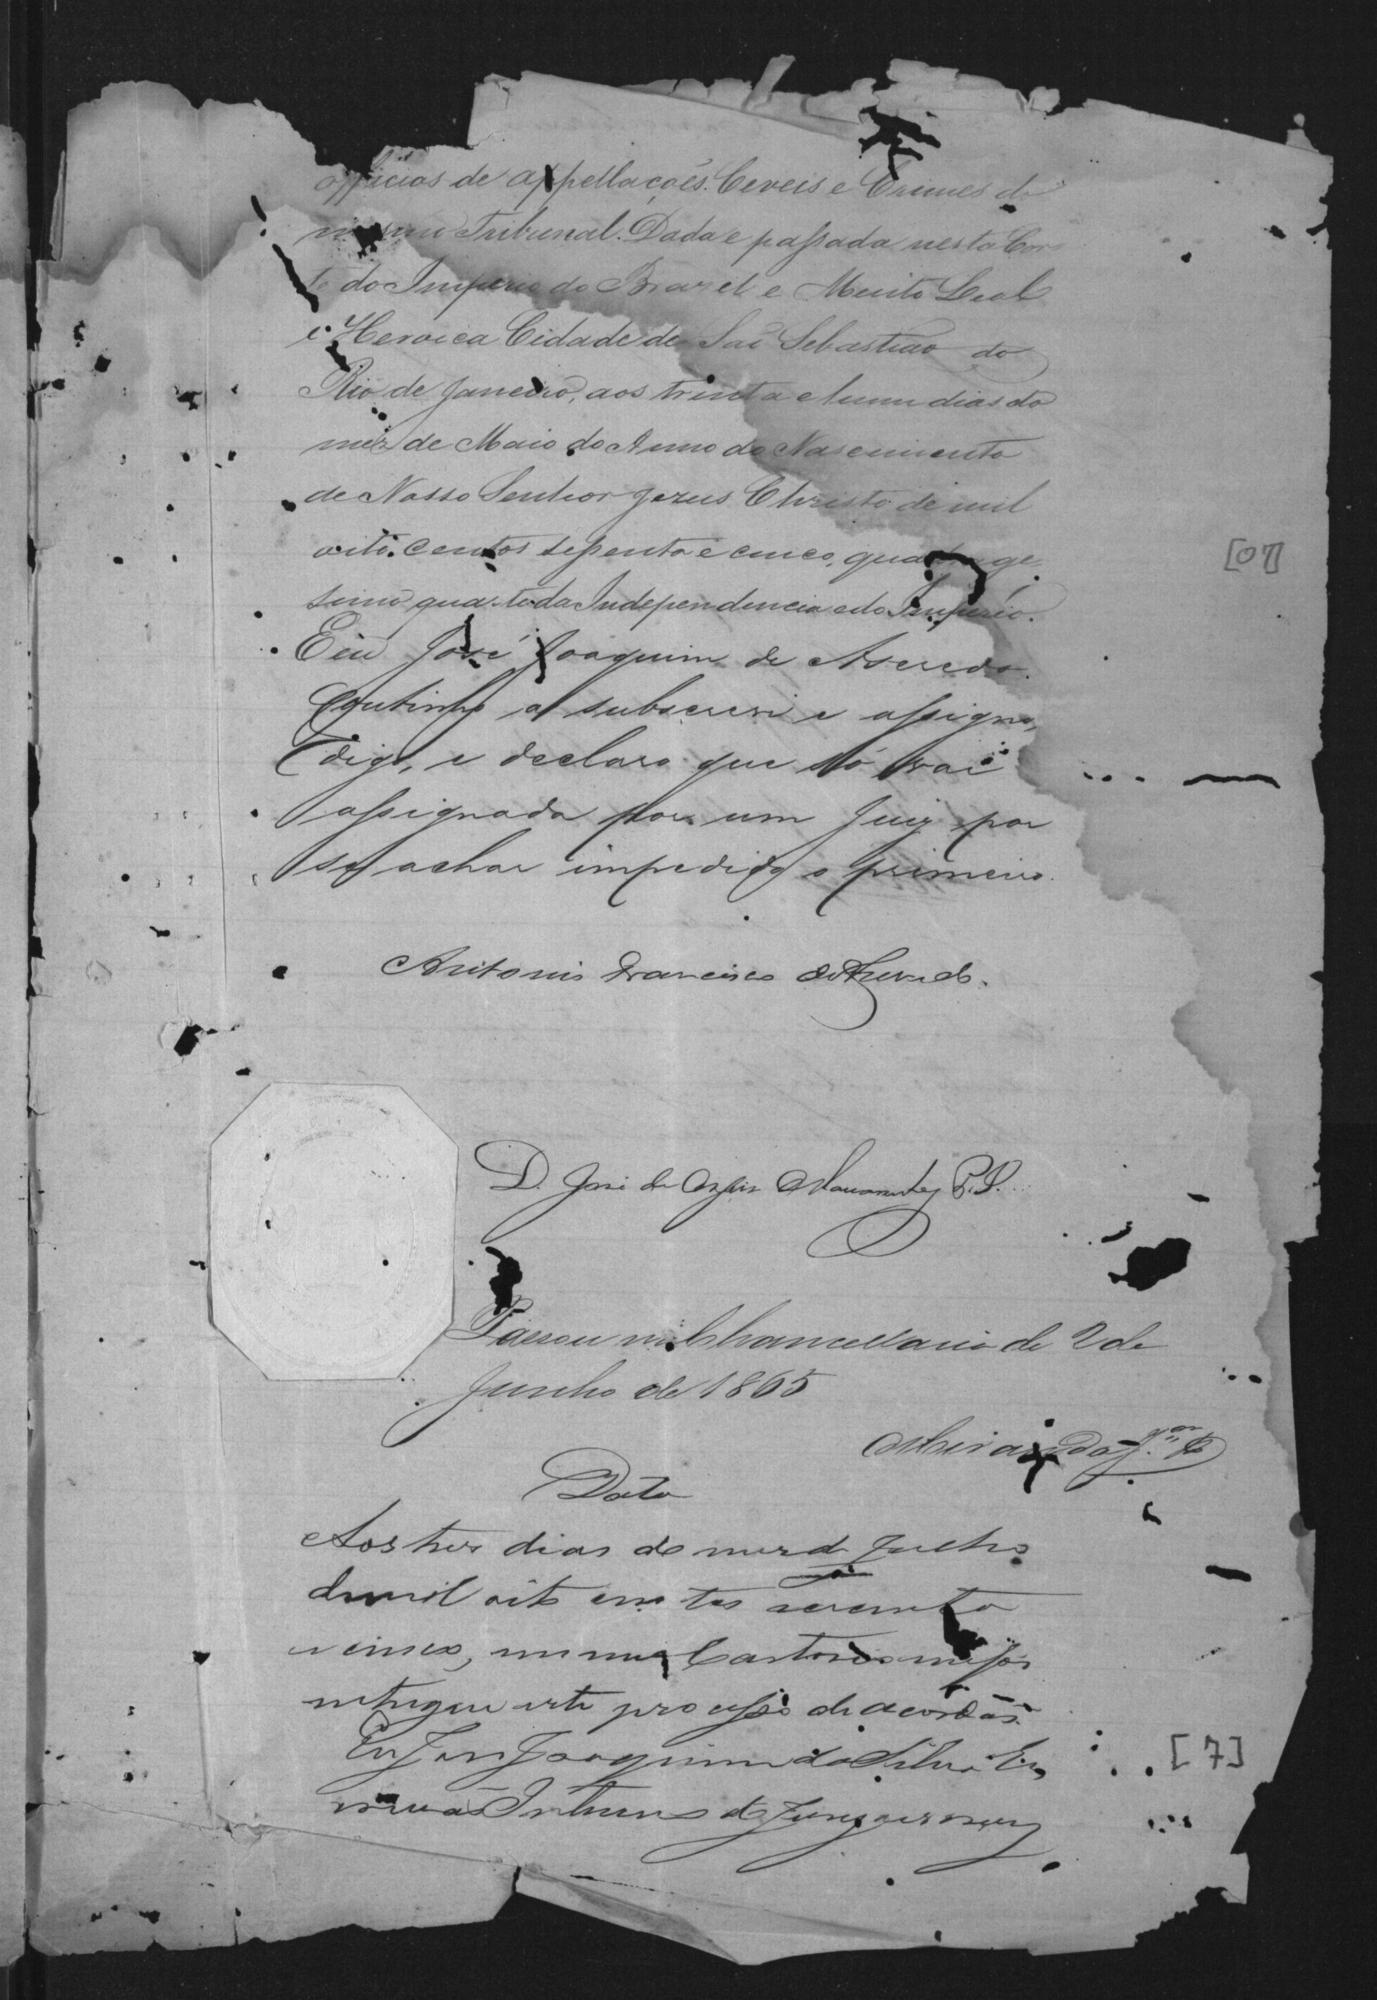 officios de appellações Civeis e Crimes do
mesmo Tribunal. Dada e passada nesta Cor
te do Imperio do Brazil e Muito Leal
e Heroica Cidade de São Sebastião do
Rio de Janeiro, aos trinta e hum dias do
mez de Maio do Anno do Nascimento
de Nosso Senhor Jezus Christo de mil
oito centos sessenta e cinco, quadrage
simo quarto da Independencia e do Imperio.
Eu José Joaquim de Aseredo
Coutinho a subscrevi e assigno,
digo, e declaro que só vai
assignada por um Juiz por
se achar impedido o primeiro.
Antonio Francisco de Azevedo.
D. José de Assis Mascarenhas P. I.
Passou na Chancellaria de 2 de
Junho de 1865
Miranda J.or
Data
Aos tres dias do mez de Julho
de mil oito centos sessenta
e cinco, em meu Cartorio me foi
entregue este processo de acordão
Eu José Joaquim da Silva Es
crivão Interino do Jury escrevi
[07]
[7]